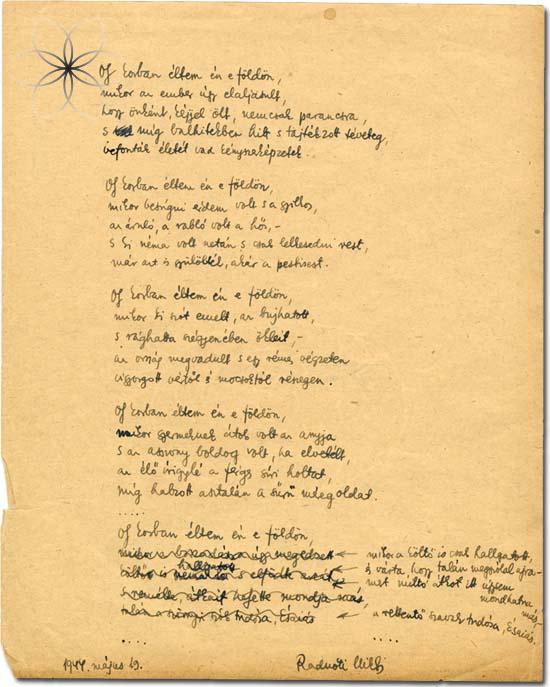 Oly korban éltem én e földön,
mikor az ember úgy elaljasult,
hogy önként, kéjjel ölt, nemcsak parancsra,
s míg balhitekben hitt s tajtékzott téveteg,
befonták életét vad kényszerképzetek.
Oly korban éltem én e földön,
mikor besúgni érdem volt s a gyilkos,
az áruló, a rabló volt a hős, –
s ki néma volt netán s csak lelkesedni rest,
már azt is gyűlölték, akár a pestisest.
Oly korban éltem én e földön,
mikor ki szót emelt, az bujhatott,
s rághatta szégyenében ökleit, –
az ország megvadult s egy rémes végzeten
vigyorgott vértől s mocsoktól részegen.
Oly korban éltem én e földön,
mikor gyermeknek átok volt az anyja
s az asszony boldog volt, ha elvetélt,
az élő írigylé a férges síri holtat,
míg habzott asztalán a sűrű méregoldat.
.....
Oly korban éltem én e földön,
mikor a költő is csak hallgatott,
és várta, hogy talán megszólal ujra –
mert méltó átkot itt úgysem mondhatna más, –
a rettentő szavak tudósa, Ésaiás.
....
....
1944. május 19.
Radnóti Miklós